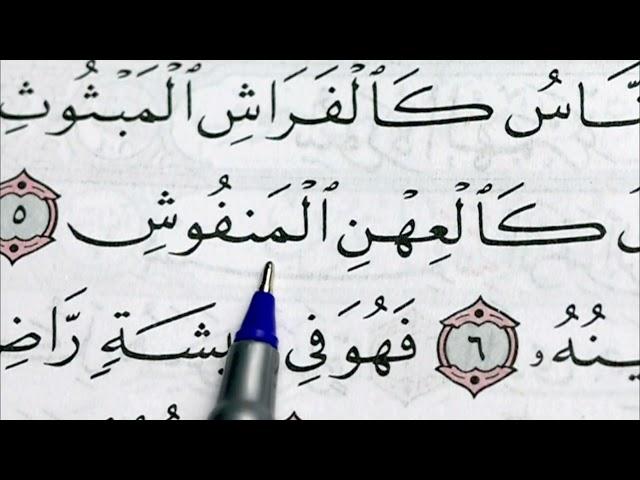 نَّاسُ كَٱلْفَرَاشِ ٱلْمَبْثُوثِ
كَٱلْعِهْنِ ٱلْمَنفُوشِ ٥
ينُهُۥ ٦ فَهُوَ فِى يشَةٍ رَّاضِ